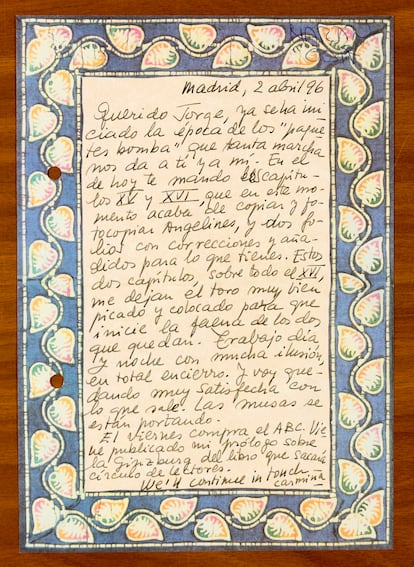 Madrid, 2 abril 96
Querido Jorge, ya se ha ini
ciado la época de los "paque
tes bomba" que tanta marcha
nos da a ti y a mí. En el
de hoy te mando los capítu-
los XV y XVI, que en este mo-
mento acaba de copiar y fo-
tocopiar Angelines, y dos fo-
lios con correcciones y aña-
didos para lo que tienes. Estos
dos capítulos, sobre todo el XVI,
me dejan el toro muy bien
picado y colocado para que
inicie la faena de los dos
que quedan. Trabajo día
y noche con mucha ilusión,
en total encierro. Y voy que-
dando muy satisfecha con
lo que sale. Las musas se
están portando.
El viernes compra el ABC. Vie-
ne publicado mi prólogo sobre
la Ginzburg del libro que sacará
círculo de lectores.
We'll continue in touch
Carmiña